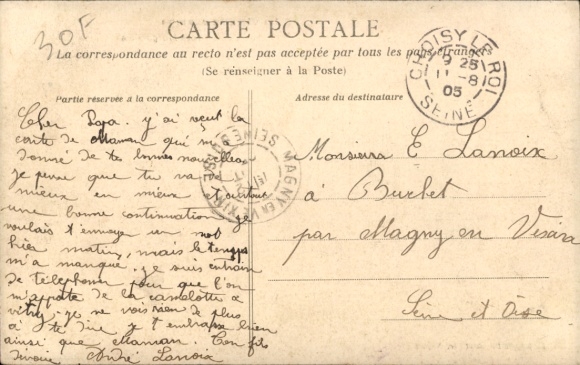 30F
CARTE POSTALE
La correspondance au recto n'est pas acceptée par tous les pays étrangers
(Se renseigner à la Poste)
Partie réservée à la correspondance
Adresse du destinataire
CHOISY LE ROI
9 25
11 - 8
05
SEINE
MAGNY EN VEXIN
SEINE
Cher Papa. y'ai reçut la
carte de Maman qui m'a
donné de tes bonnes nouvelles
je pense que tu va de
mieux en mieux
une bonne continuation je
voulais t'envoyer un mot
hier matin, mais le temps
m'a manqué. je suis entrain
de téléphoner pour que l'on
m'apporte de la camelotte a
vitry. je ne vois rien de plus
a te dire y t'embrasse bien
ainsi que Maman. Ton fils
André Lanoix
Monsieur E Lanoix
à Buchet
par Magny en
Seine et Oise